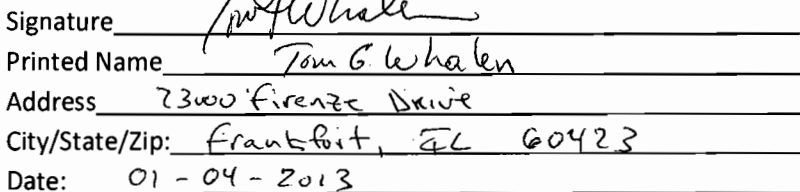 Signature Tom G Whalen
Printed Name Tom G. Whalen
Address 23000 Firenze Drive
City/State/Zip: Frankfort, IL 60423
Date: 01-04-2013